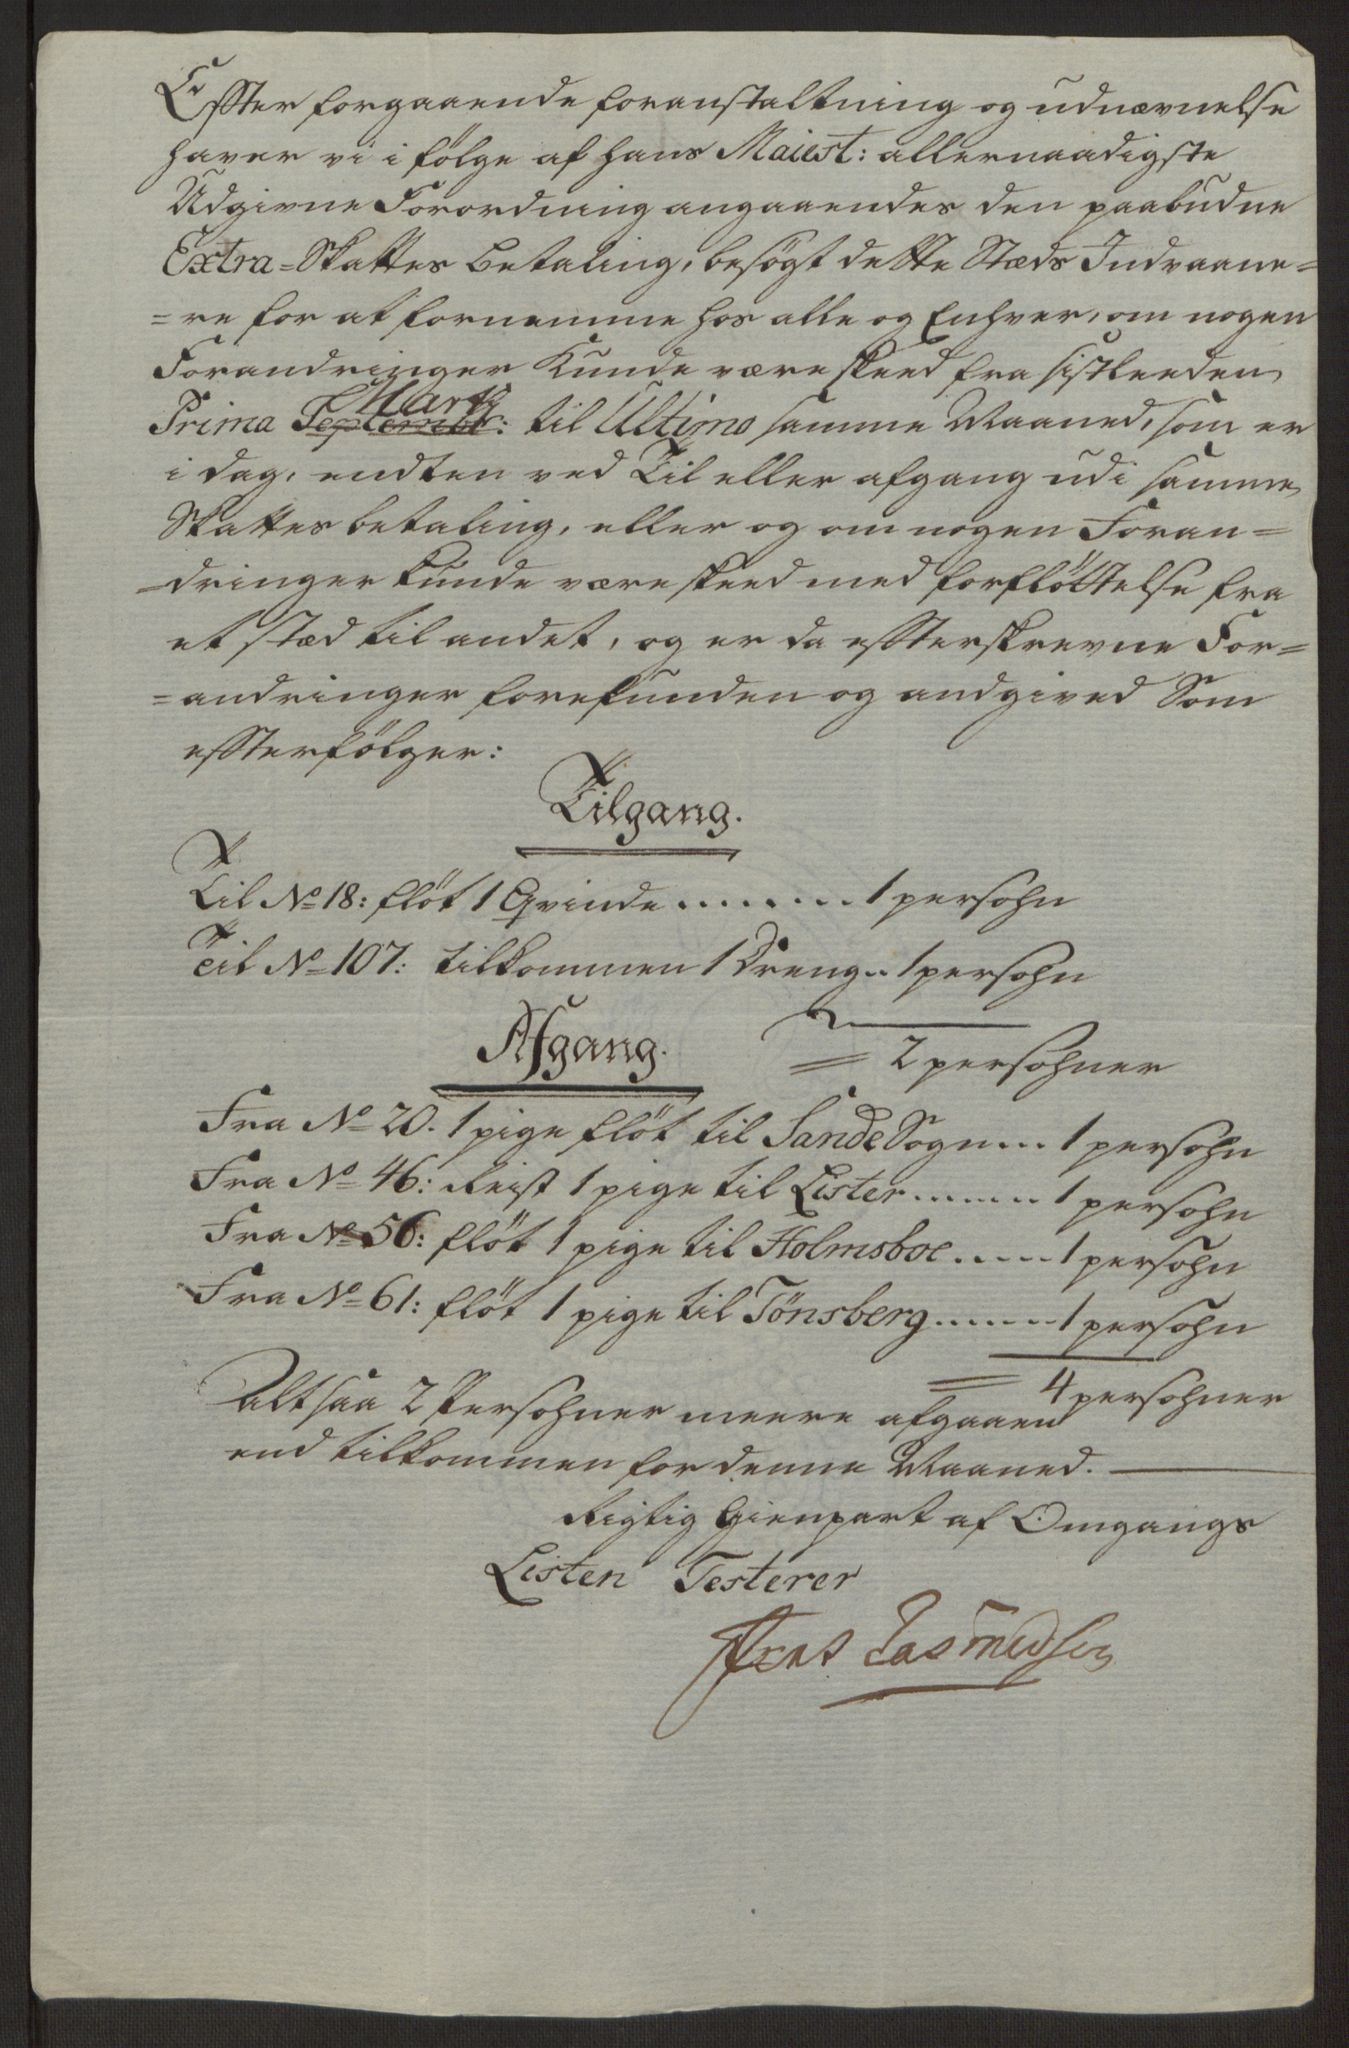 Effter forgaaende foranstaltning og udnævnelse
haver vi i følge af hans Maiest: allernaadigste
Udgivne Forordning angaaendes den paabudne
Extra=Skattes betaling, besøgt dette Stæds Indvaane=
=re for at fornemme hos alle og Enhver, om nogen
Forandringer Kunde være skeed fra sistleeden
Marty
Prima Septembr: til Ultimo samme Maaned, som er
i dag, endten ved Til eller afgang udi samme
Skattes betaling, eller og om nogen Foran=
=dringer kunde være skeed med forfløttelse fra
et stæd til andet, og er da effterskrevne For=
=andringer forefunden og andgived Som
effterfølger:
Tilgang.
Til No 18: fløt 1 Qvinde ........ 1 persohn
Til No 107: tilkommen 1 Dreng .. 1 persohn
= 2 persohner
Afgang.
Fra No 20. 1 pige fløt til Sande Sogn ... 1 persohn
Fra No 46: Reist 1 pige til Lister ....... 1 persohn
Fra No 56: fløt 1 pige til Holmsboe ..... 1 persohn
Fra No 61: fløt 1 pige til Tönsberg ...... 1 persohn
= 4 persohner
Altsaa 2 Persohner meere afgaaen
end tilkommen for denne Maaned.
Rigtig Gienpart af Omgangs
Listen Testerer
Arnt Rasmusen